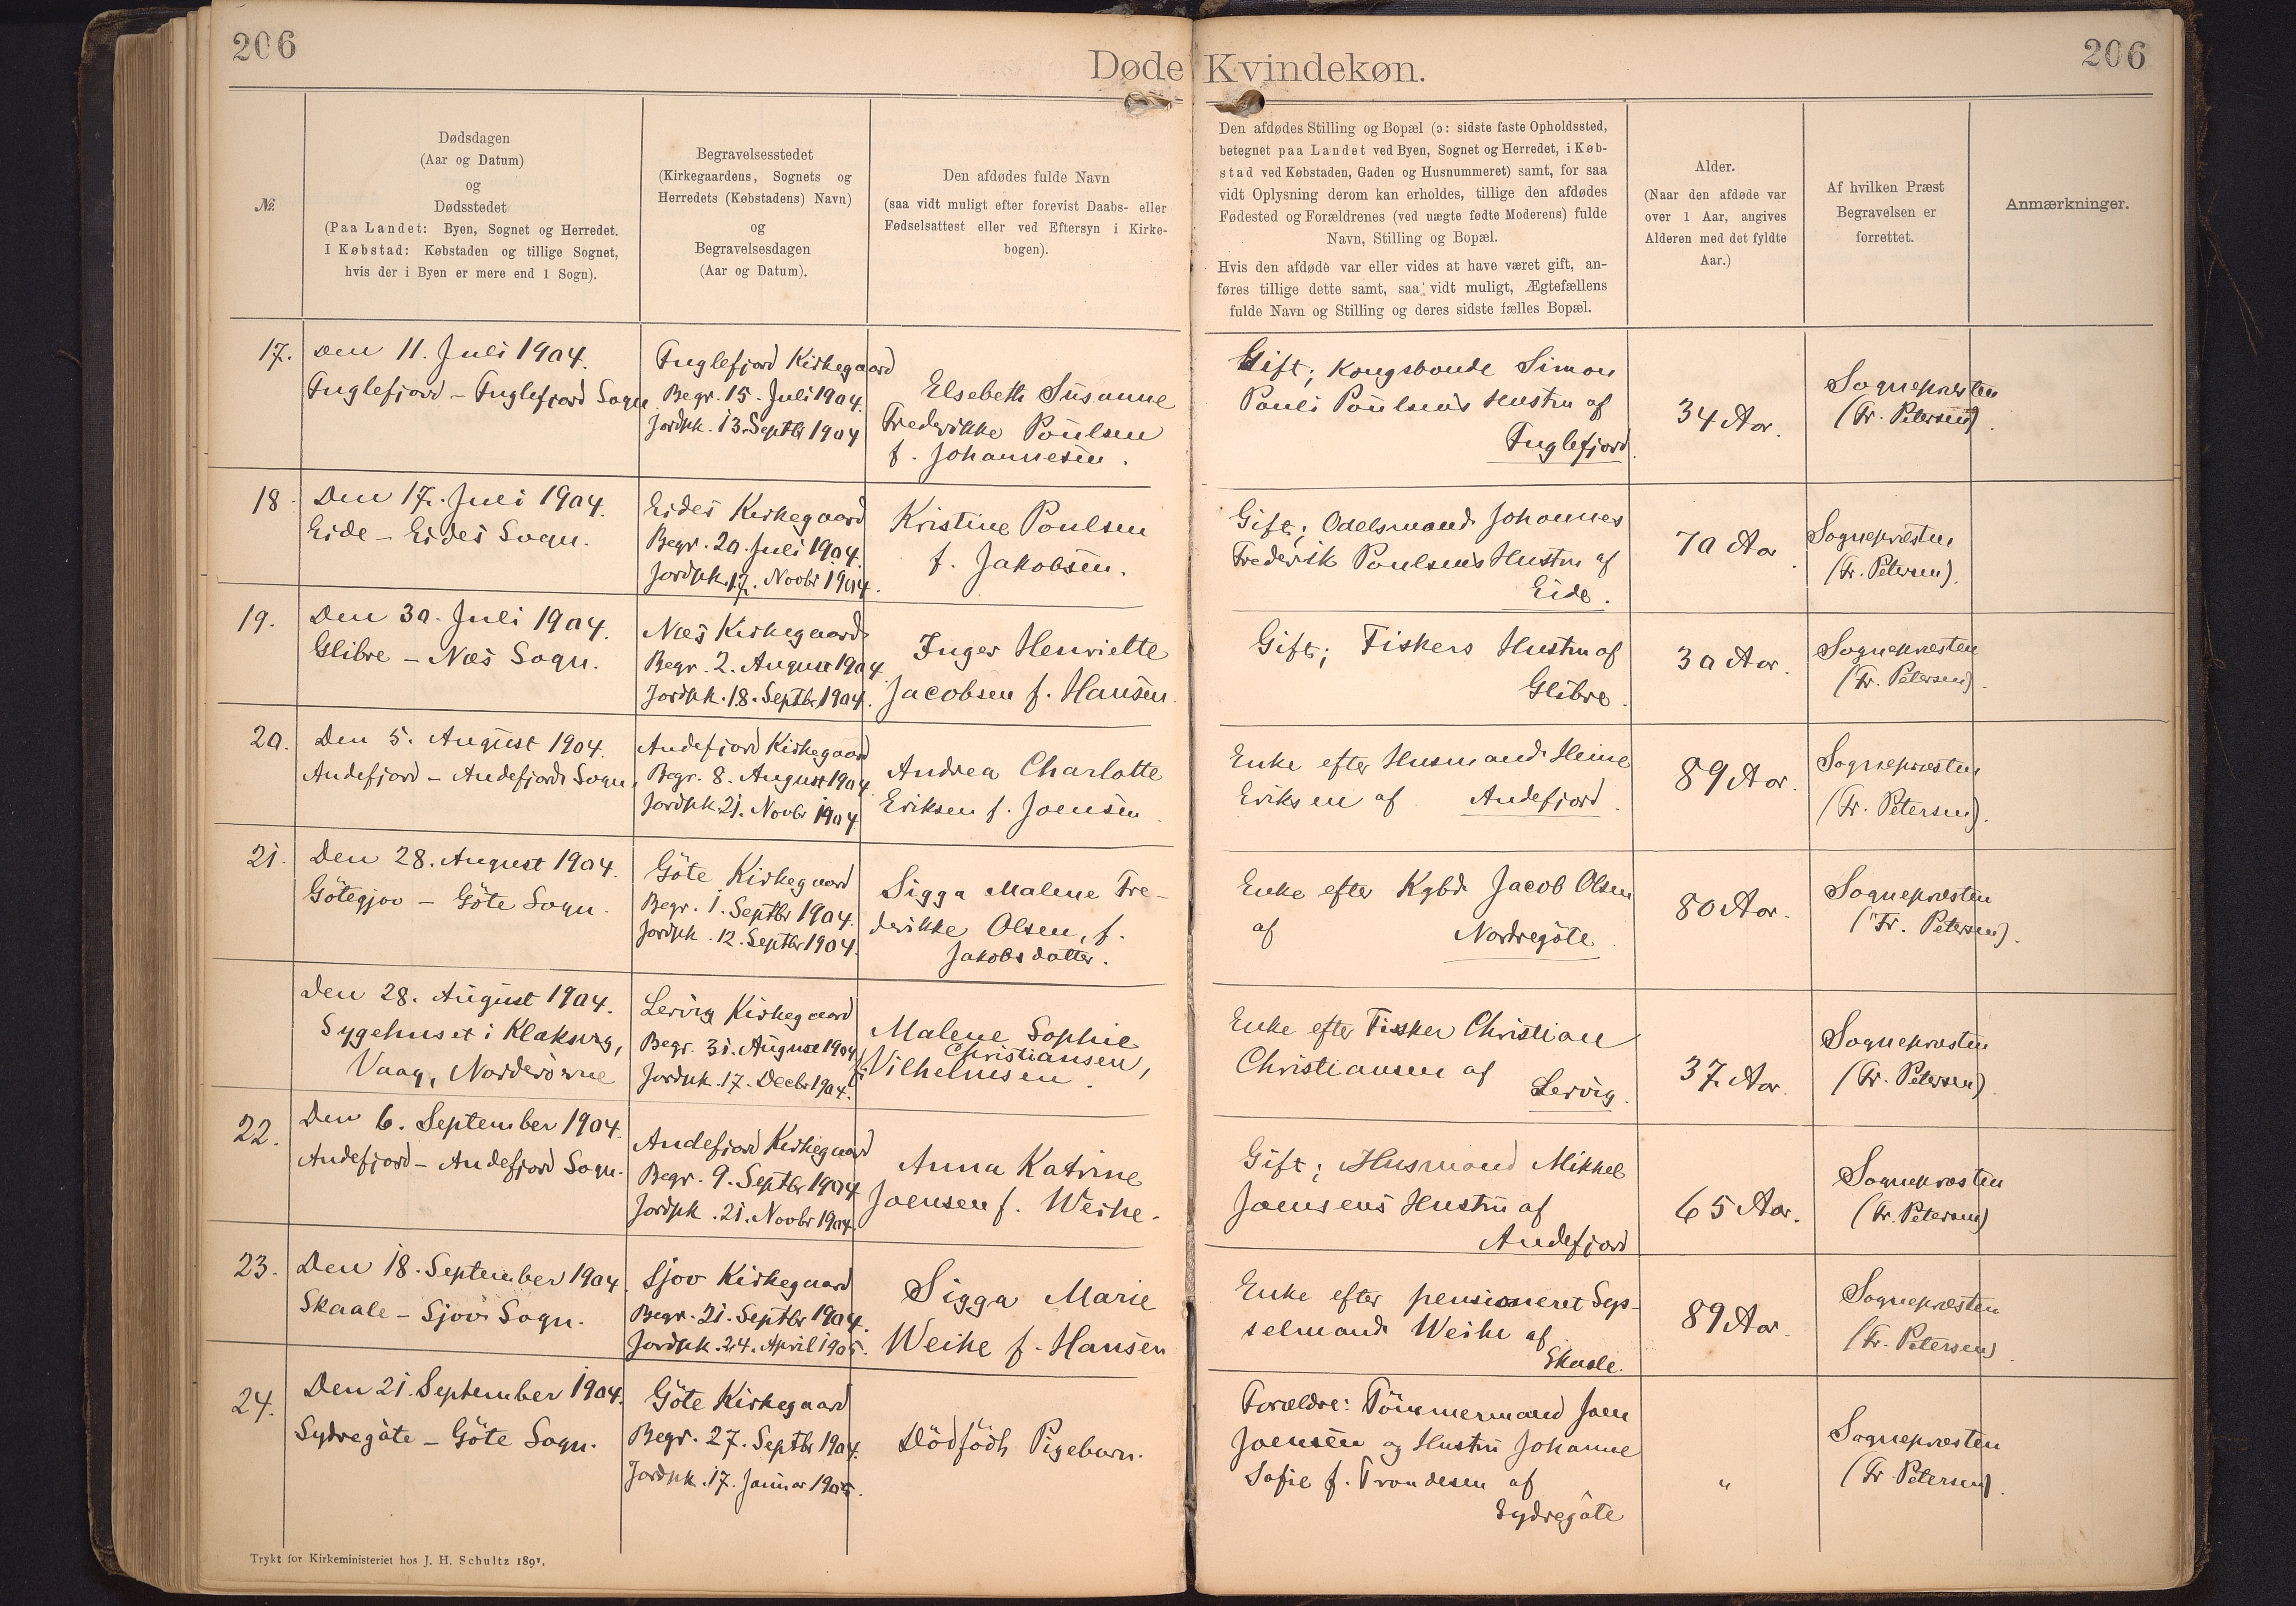 206
Døde Kvindekøn.
206
№.
Dødsdagen
(Aar og Datum)
og
Dødsstedet
(Paa Landet: Byen, Sognet og Herredet.
I Købstad: Købstaden og tillige Sognet,
hvis der i Byen er mere end 1 Sogn).
Begravelsesstedet
(Kirkegaardens, Sognets og
Herredets (Købstadens) Navn)
og
Begravelsesdagen
(Aar og Datum).
Den afdødes fulde Navn
(saa vidt muligt efter forevist Daabs- eller
Fødselsattest eller ved Eftersyn i Kirke-
bogen).
Den afdødes Stilling og Bopæl (ɔ: sidste faste Opholdssted,
betegnet paa Landet ved Byen, Sognet og Herredet, i Køb-
stad ved Købstaden, Gaden og Husnummeret) samt, for saa
vidt Oplysning derom kan erholdes, tillige den afdødes
Fødested og Forældrenes (ved uægte fødte Moderens) fulde
Navn, Stilling og Bopæl.
Hvis den afdøde var eller vides at have været gift, an-
føres tillige dette samt, saa vidt muligt, Ægtefællens
fulde Navn og Stilling og deres sidste fælles Bopæl.
Alder.
(Naar den afdøde var
over 1 Aar, angives
Alderen med det fyldte
Aar.)
Af hvilken Præst
Begravelsen er
forrettet.
Anmærkninger.
17.
Den 11. Juli 1904.
Fuglefjord – Fuglefjord Sogn
Fuglefjord Kirkegaard
Begr. 15. Juli 1904.
Jordpk. 13. Septbr 1904
Elsebeth Susanne
Frederikke Poulsen
f. Johannesen.
Gift; Kongsbonde Simon
Pauli Poulsens Hustru af
Fuglefjord.
34 Aar.
Sognepræsten
(Fr. Petersen).
18.
Den 17. Juli 1904.
Eide – Eides Sogn.
Eides Kirkegaard
Begr. 20. Juli 1904.
Jordpk. 17. Novbr 1904.
Kristine Poulsen
f. Jakobsen.
Gift; Odelsmand Johannes
Frederik Poulsens Hustru af
Eide.
70 Aar.
Sognepræsten
(Fr. Petersen).
19.
Den 30. Juli 1904.
Glibre – Næs Sogn.
Næs Kirkegaard
Begr. 2. August 1904.
Jordpk. 18. Septbr 1904.
Inger Henriette
Jacobsen f. Hansen.
Gift; Fiskers Hustru af
Glibre.
30 Aar.
Sognepræsten
(Fr. Petersen).
20.
Den 5. August 1904.
Andefjord – Andefjords Sogn.
Andefjord Kirkegaard
Begr. 8. August 1904.
Jordpk. 21. Novbr 1904
Andrea Charlotte
Eriksen f. Joensen.
Enke efter Husmand Heine
Eriksen af Andefjord.
89 Aar.
Sognepræsten
(Fr. Petersen).
21.
Den 28. August 1904.
Götegjov – Göte Sogn.
Göte Kirkegaard
Begr. 1. Septbr 1904.
Jordpk. 12. Septbr 1904.
Sigga Malene Fre-
derikke Olsen, f.
Jakobsdatter.
Enke efter Kgbd. Jacob Olsen
af Nordregöte.
80 Aar.
Sognepræsten
(Fr. Petersen).
Den 28. August 1904.
Sygehuset i Klaksvig,
Vaag, Norderöerne
Lervig Kirkegaard
Begr. 31. August 1904
Jordpk. 17. Decbr 1904.
Malene Sophie
Christiansen,
f. Vilhelmsen.
Enke efter Fisker Christian
Christiansen af
Lervig.
37 Aar.
Sognepræsten
(Fr. Petersen).
22.
Den 6. September 1904.
Andefjord – Andefjord Sogn.
Andefjord Kirkegaard
Begr. 9. Septbr 1904.
Jordpk. 21. Novbr 1904.
Anna Katrine
Joensen f. Weihe.
Gift; Husmand Mikkel
Joensens Hustru af
Andefjord
65 Aar.
Sognepræsten
(Fr. Petersen)
23.
Den 18. September 1904.
Skaale – Sjov Sogn.
Sjov Kirkegaard
Begr. 21. Septbr 1904.
Jordpk. 24. April 1905.
Sigga Marie
Weihe f. Hansen
Enke efter pensioneret Sys-
selmand Weihe af
Skaale.
89 Aar.
Sognepræsten
(Fr. Petersen).
24.
Den 21. September 1904.
Sydregöte – Göte Sogn.
Göte Kirkegaard
Begr. 27. Septbr 1904.
Jordpk. 17. Januar 1905.
Dödfödt Pigebarn.
Forældre: Tömmermand Joen
Joensen og Hustru Johanne
Sofie f. Trondesen af
Sydregöte
"
Sognepræsten
(Fr. Petersen).
Trykt for Kirkeministeriet hos J. H. Schultz 1891.